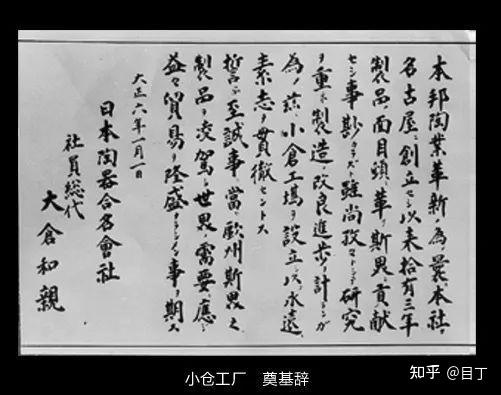 本邦陶業革新ノ為曩ニ本社ヲ
名古屋ニ創立セシ以来拾有三年
製品ノ面目頗ル革リ斯界ニ貢献
セシ事尠カラズト雖尚孜々トシテ研究
ヲ重ネ製造ノ改良進歩ヲ計ランガ
為メ茲ニ小倉工場ヲ設立シ以永遠ノ
素志ヲ貫徹セントス
誓テ至誠事ニ當リ歐州斯界ノ
製品ヲ凌駕シ世界ノ需要ニ應ジ
益々貿易ヲ隆盛ナラシメン事ヲ期ス
大正六年一月一日
日本陶器合名會社
社員総代
大倉和親
小仓工厂 奠基辞
知乎 @目丁